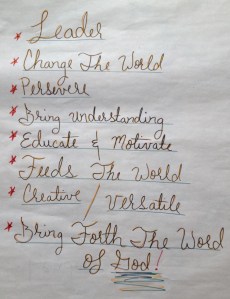 * Leader
* Change The World
* Persevere
* Bring Understanding
* Educate & Motivate
* Feeds The World
* Creative / Versatile
* Bring Forth The Word
of God!